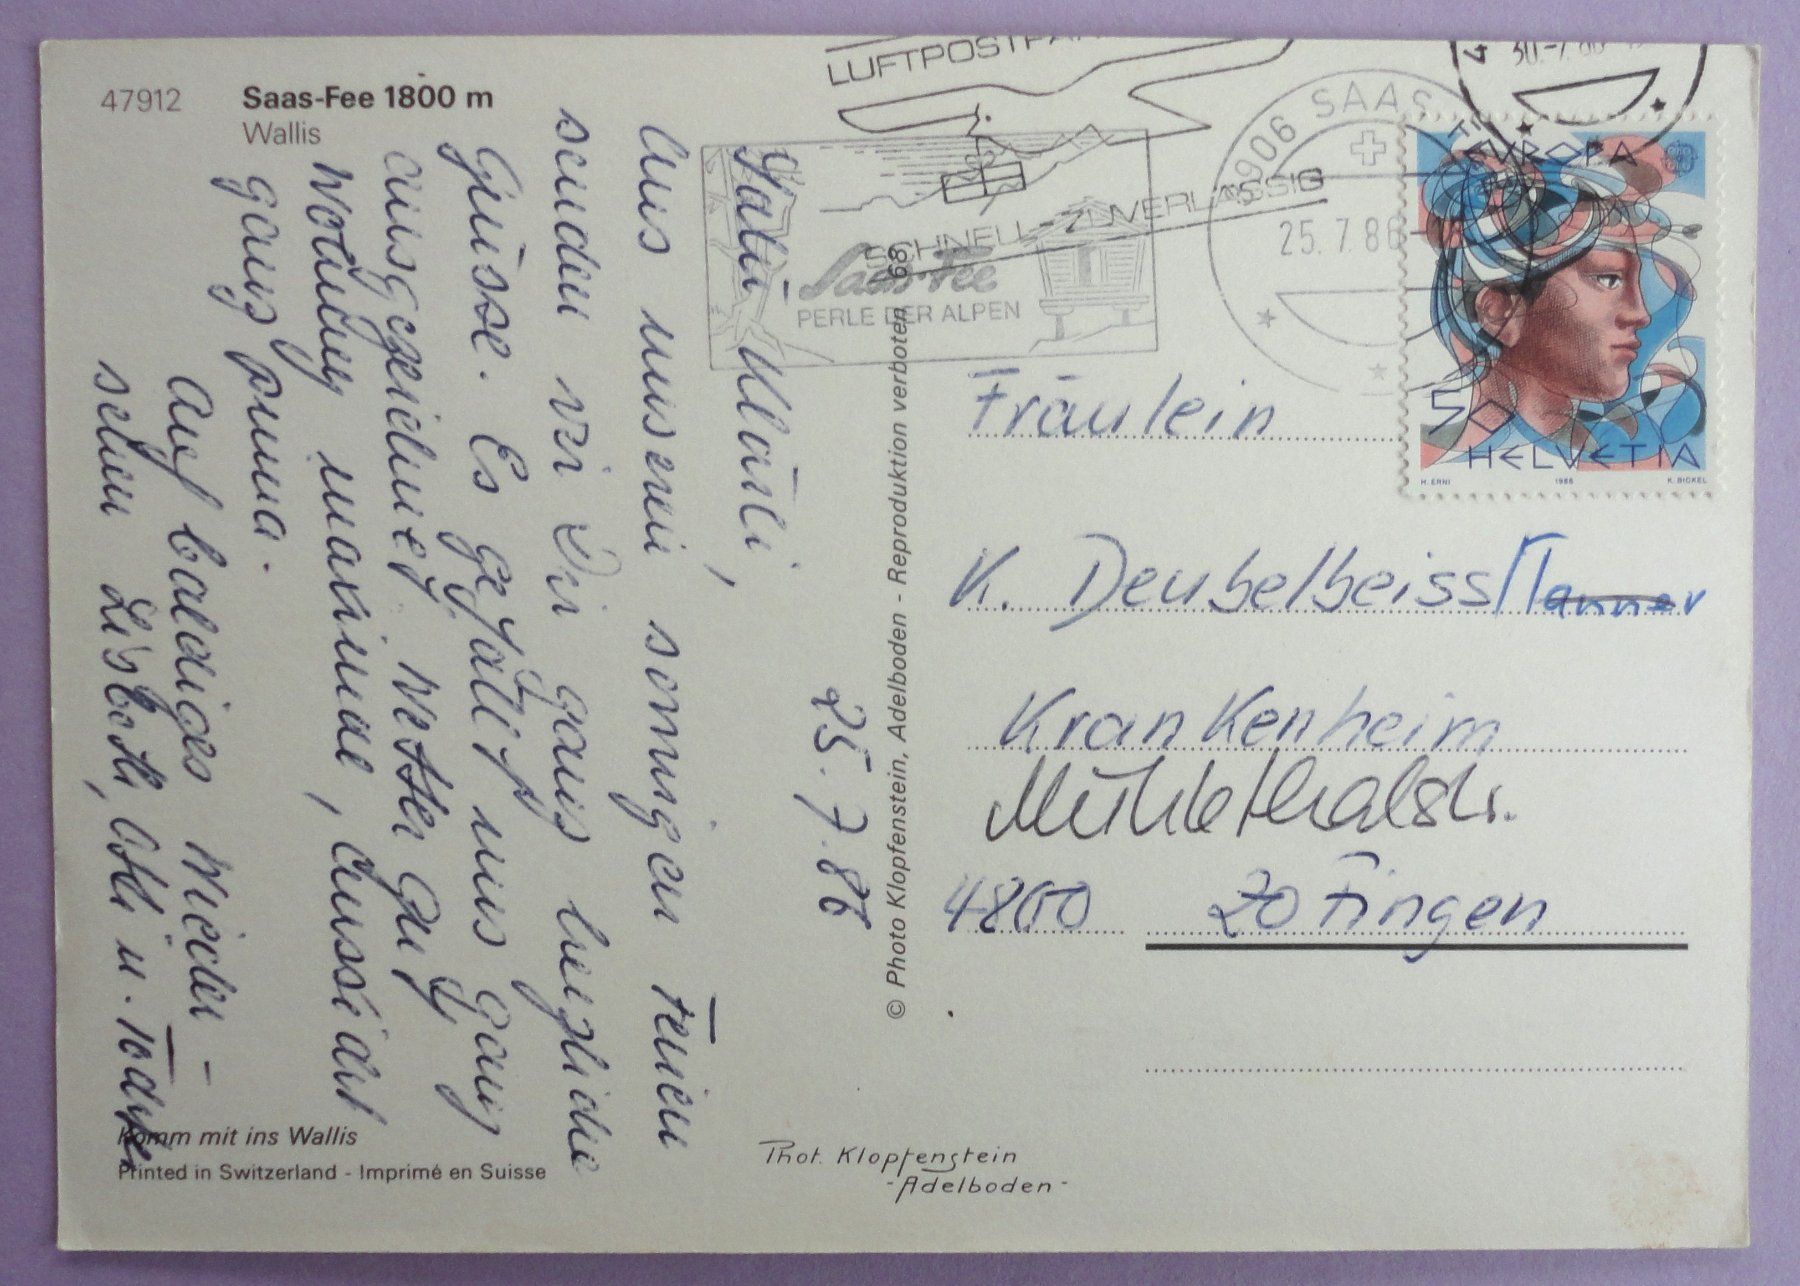 47912
Saas-Fee 1800 m
Wallis
25.7.86
Salü Kläri,
Aus unseren sonnigen Ferien
senden wir Dir ganz herzliche
Grüsse. Es gefällt uns ganz
ausgezeichnet, Wetter gut,
Wohnung maximal, Aussicht
ganz prima.
Auf baldiges Wieder-
sehen Lisbeth, u.
Komm mit ins Wallis
Printed in Switzerland - Imprimé en Suisse
© Photo Klopfenstein, Adelboden - Reproduktion verboten 68
Phot. Klopfenstein
-Adelboden-
LUFTPOST
SCHNELL - ZUVERLÄSSIG
Saas-Fee
PERLE DER ALPEN
3906 SAAS
25.7.86
30.-7.86
EUROPA
50
HELVETIA
H. ERNI 1986 K. BICKEL
Fräulein
K. Deubelbeiss
Krankenheim
Mühlethalstr.
4800 Zofingen